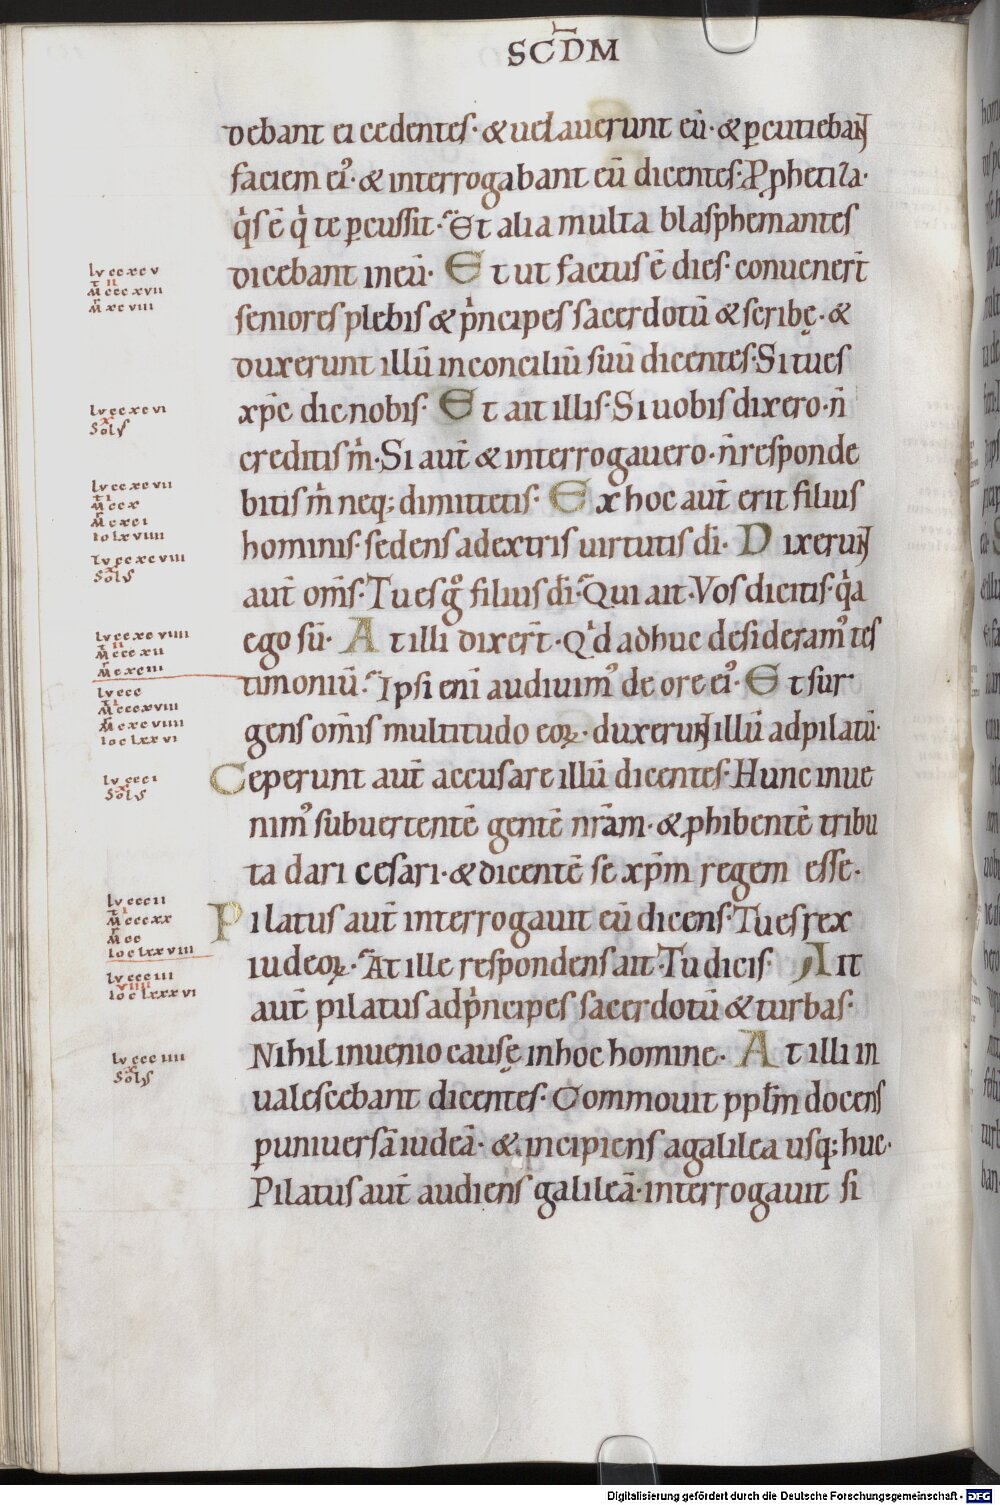 SCD̅M
debant ei cedentes· & uelauerunt eū· & ꝑcutieban̄t
faciem ei᾽· & interrogabant eū dicentes· Pphetiza·
q̇s ē q̇ te ꝑcussit· Et alia multa blasphemantes
dicebant in eū· Et ut factus ē dies· conuener̄t
seniores plebis & ṗncipes sacerdotū & scribę· &
duxerunt illū in conciliū suū dicentes· Si tu es
xp̄c dic nobis· Et ait illis· Si uobis dixero· n̄
creditis ṁ· Si aut̄ & interrogauero· n̄ responde
bitis ṁ neq; dimittetis· Ex hoc aut̄ erit filius
hominis· sedens a dextris uirtutis dī· Dixerunt
aut̄ om̄s· Tu es g̊ filius dī· Qui ait· Vos dicitis· q̇a
ego sū· At illi dixer̄t· Q̇d adhuc desideram᾽ tes
timoniū· Ipsi eni᷎ audiuim᾽ de ore ei᾽· Et sur
gens om̄is multitudo eoꝝ· duxerunt illū ad pilatū·
Ceperunt aut̄ accusare illū dicentes· Hunc inue
nim᾽ subuertentē gentē nr̄am· & ꝓhibentē tribu
ta dari cesari· & dicentē se xp̄m regem esse·
Pilatus aut̄ interrogauit eū dicens· Tu es rex
iudeoꝝ· At ille respondens ait· Tu dicis· Ait
aut̄ pilatus ad ṗncipes sacerdotū & turbas·
Nihil inuenio causę in hoc homine· At illi in
ualescebant dicentes· Commouit ppl̄m docens
ꝑ uniuersā iudeā· & incipiens a galilea usq; huc·
Pilatus aut̄ audiens galileā· interrogauit si
lv ccxcv
II
M cccxvii
M xcviii
lv ccxcvi
X
Sol᷎
lv ccxcvii
M ccx
M cxci
io lxviiii
lv ccxcviii
X
Sol᷎
lv ccxcviiii
II
M cccxii
M cxciii
lv ccc
M cccxviii
M cxcviiii
io clxxvi
lv ccci
X
Sol᷎
lv cccii
M cccxx
M cc
io clxxviii
lv ccciii
VIIII
io clxxxvi
lv ccciiii
X
Sol᷎
Digitalisierung gefördert durch die Deutsche Forschungsgemeinschaft - DFG